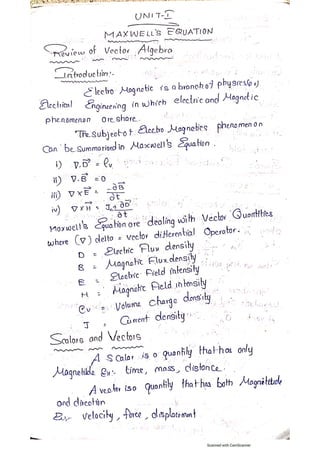 UNIT-I
MAXWELL'S EQUATION
Review of Vector Algebra
Introduction:-
Electro Magnetic is a branch of physics (or)
Electrical Engineering in which electric and Magnetic
phenomenon are share.
"The subject of Electro Magnetics phenomenon
Can be Summarised in Maxwell's Equation.
i) ∇.D⃗ = ρv
ii) ∇.B⃗ = 0
iii) ∇×E⃗ = -∂B⃗/∂t
iv) ∇×H⃗ = J+∂D⃗/∂t
Maxwell's Equation are dealing with Vector Quantities
where (∇) delta = vector differential Operator.
D = Electric Flux density
B = Magnetic Flux density
E = Electric Field intensity
H = Magnetic Field intensity
ρv = Volume charge density
J = Current density
Scalars and Vectors
A Scalar is a quantity that has only
Magnetide Ex:- time, mass, distance.
A vector is a quantity that has both Magnitetude
and direction
Ex:- Velocity, force, displacement
Scanned with CamScanner